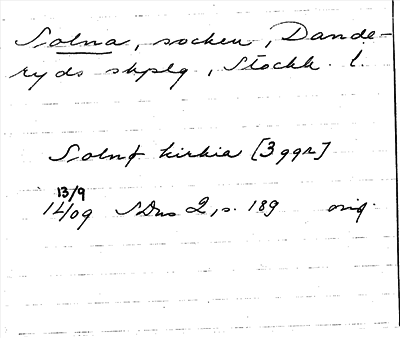 Solna, socken, Dande-
ryds skplg, Stockh. l.
Solnf kirkia [3 ggr]
13/9
14/09 SDns 2, s. 189 orig.